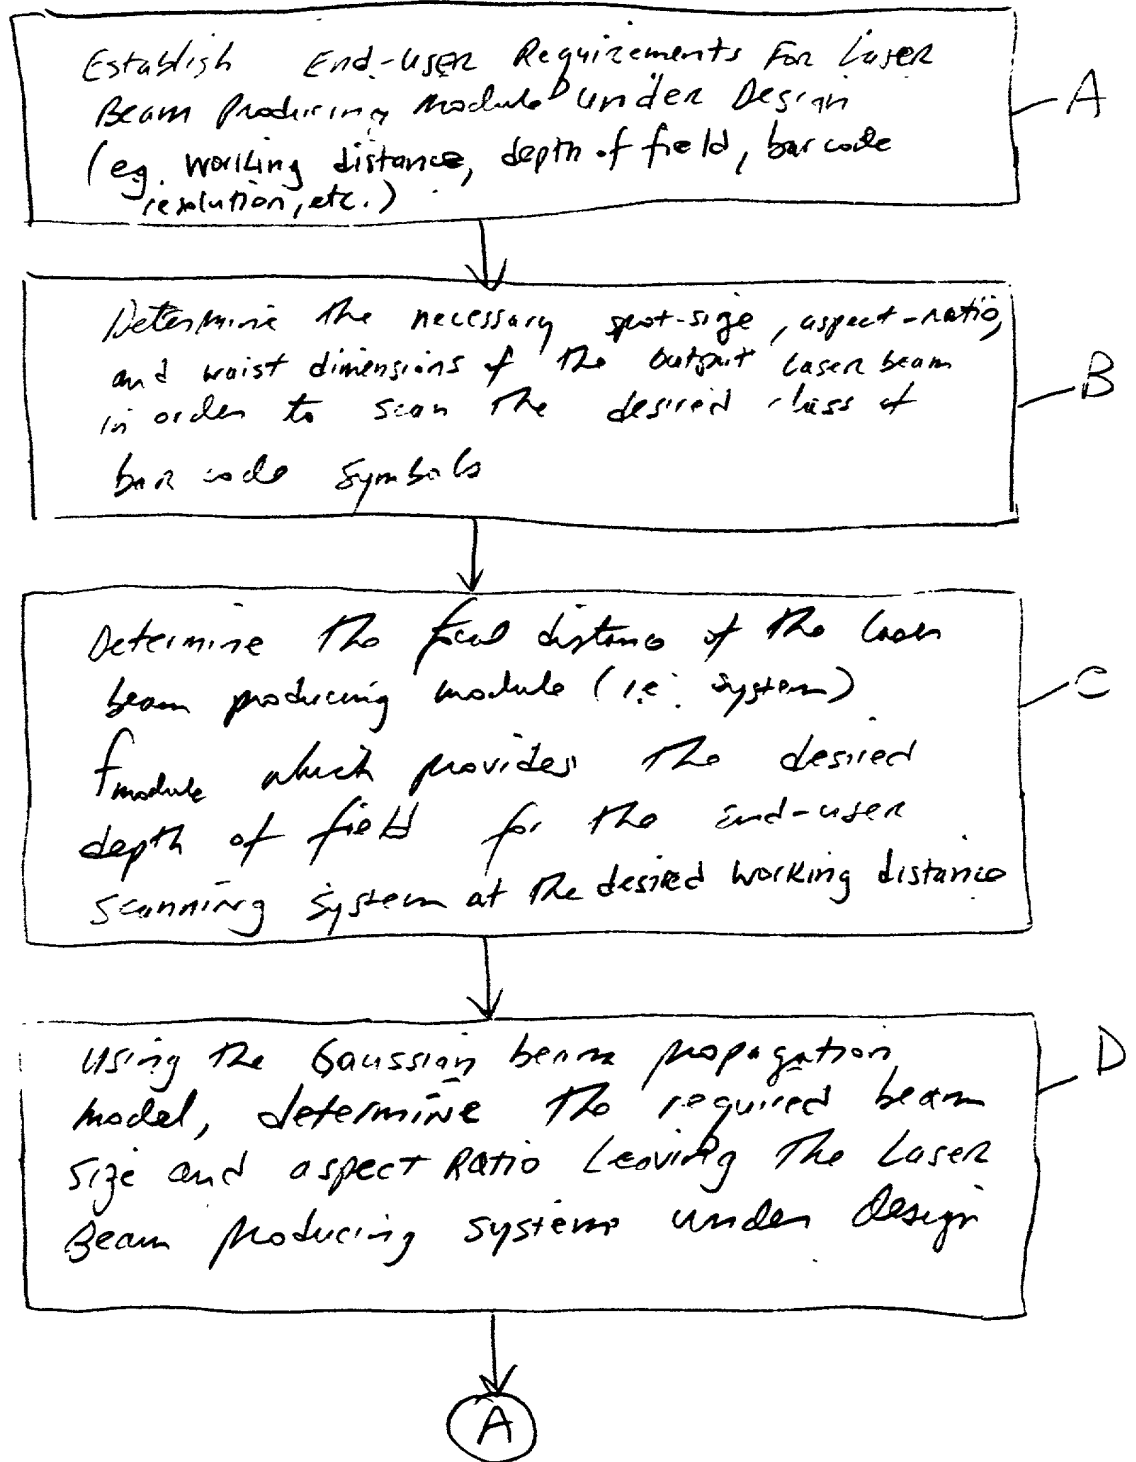 Establish End-user Requirements For Laser
Beam Producing Module under Design
(eg. working distance, depth of field, bar code
resolution, etc.)
A
Determine the necessary spot-size, aspect-ratio,
and waist dimensions of the output laser beam
in order to scan the desired class of
bar code symbols
B
Determine the focal distance of the laser
beam producing module (i.e. system)
fmodule which provides the desired
depth of field for the end-user
scanning system at the desired working distance
C
Using the Gaussian beam propagation
model, determine the required beam
size and aspect Ratio Leaving The Laser
Beam Producing systems under design
D
A